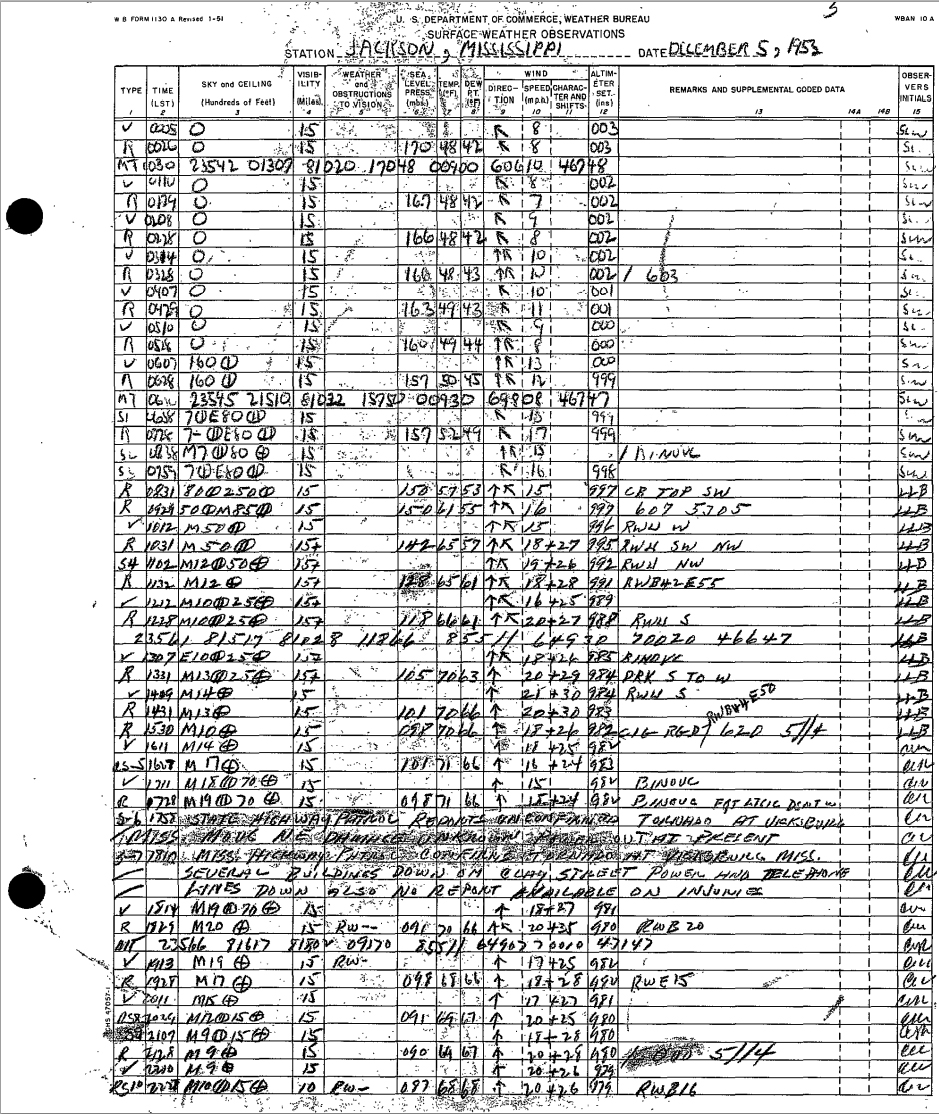 W B FORM 1130 A Revised 1-51
U. S. DEPARTMENT OF COMMERCE, WEATHER BUREAU
WBAN 10 A
5
SURFACE WEATHER OBSERVATIONS
STATION JACKSON, MISSISSIPPI DATE DECEMBER 5, 1953
TYPE TIME (LST) SKY and CEILING (Hundreds of Feet) VISIBILITY (Miles) WEATHER and OBSTRUCTIONS TO VISION SEA LEVEL PRESS. (mbs.) TEMP. (°F) DEW PT. (°F) WIND DIRECTION SPEED (m.p.h.) CHARACTER AND SHIFTS ALTIMETER SET. (ins) REMARKS AND SUPPLEMENTAL CODED DATA OBSERVER'S INITIALS
1 2 3 4 5 6 7 8 9 10 11 12 13 14A 14B 15
V 0005 O 15 ↖ 8 003
R 0026 O 15 170 48 42 ↖ 8 003
MT 0030 23542 01307 81020 17048 00900 60610 46748
V 0110 O 15 ↖ 8 002
R 0129 O 15 167 48 42 ↖ 7 002
V 0208 O 15 ↖ 9 002
R 0228 O 15 166 48 42 ↖ 8 002
V O 15 ↑↖ 10 002
R 0328 O 15 48 43 ↑↖ 10 002 / 603
V 0407 O 15 ↖ 10 001
R 0429 O 15 163 49 43 ↖ 11 001
V 0510 O 15 ↖ 9 000
R O 15 160 49 44 ↑↖ 8 000
V 0607 160⦶ 15 ↑↖ 13 000
R 0628 160⦶ 15 157 50 45 ↑↖ 12 999
MT 23545 21510 81032 15750 00930 69808 46747
S1 0658 7⦶E80⦶ 15 ↖ 15 999
R 0728 7-⦶E80⦶ 15 157 52 49 ↖ 17 999
M7⦶80⊕ 15 ↑↖ 15 / BINOVC
0759 7⦶E80⦶ 15 ↖ 16 998
R 0831 80⦶250⦶ 15 150 57 53 ↑↖ 15 997 CB TOP SW LLB
R 0929 50⦶M85⦶ 15 150 61 55 ↑↖ 16 997 607 5705 LLB
V 1012 M50⦶ 15 ↑↖ 15 996 RWU W LLB
R 1031 M50⦶ 15+ 142 65 57 ↑↖ 18+27 995 RWU SW NW LLB
S4 1102 M12⦶50⊕ 15+ ↑↖ 19+26 992 RWU NW LLB
R 1132 M12⊕ 15+ 128 65 61 ↑↖ 18+28 991 RWB42E55 LLB
V 1212 M10⦶25⊕ 15+ ↑↖ 16+25 989 LLB
R 1228 M10⦶25⊕ 15+ 118 66 61 ↑↖ 20+27 988 RWU S LLB
23561 81517 81028 11866 85511 64930 70020 46647 LLB
V 1307 E10⦶25⦶ 15+ ↑↖ 18+26 985 BINOVC LLB
R 1331 M13⦶25⊕ 15+ 105 70 63 ↑ 20+29 984 DRK S TO W LLB
V 1409 M14⊕ 15 ↑ 21+30 984 RWU S LLB
R 1431 M13⊕ 15 101 70 66 ↑ 20+30 983 LLB
R 1530 M10⊕ 15 098 70 66 ↑ 18+26 982 CIG RGD/RWB44E50 / 620 5//4 LLB
V 1611 M14⊕ 15 ↑ 18+25 982
RS-5 1628 M17⊕ 15 101 71 66 ↑ 16+24 983
V 1711 M18⦶70⊕ 15 ↑ 15 982 BINOVC
R 1728 M19⦶70⊕ 15 098 71 66 ↑ 18+24 982 BINOVC FQT LTGIC DSNT W
S-6 1758 STATE HIGHWAY PATROL REPORTS UNCONFIRMED TORNADO AT VICKSBURG
1755 MOVG NE DAMAGE UNKNOWN AT PRESENT
S-7 1810 MISS HIGHWAY PATROL CONFIRMS TORNADO AT VICKSBURG MISS.
SEVERAL BUILDINGS DOWN ON CLAY STREET POWER AND TELEPHONE
LINES DOWN ALSO NO REPORT AVAILABLE ON INJURIES
V 1814 M19⦶70⊕ 15 ↑ 18+27 981
R 1829 M20⊕ 15 RW-- 091 70 66 ↑ 20+35 980 RWB20
MT 23566 81617 09170 85511 64907 70010 47147
V 1913 M19⊕ 15 RW- ↑ 17+25 982
R 1928 M17⊕ 15 098 68 66 ↑ 18+28 982 RWE15
V 2011 M15⊕ 15 ↑ 17+27 981
RS8 2029 M12⦶15⊕ 15 091 69 67 ↑ 20+25 980
2107 M9⦶15⊕ 15 ↑ 18+28 980
R 2128 M9⊕ 15 090 69 67 ↑ 20+28 980 5//4
V 2210 M9⊕ 15 ↑ 20+26
RS10 2228 M10⦶15⊕ 10 RW-- 087 68 68 ↑ 20+26 979 RWB16